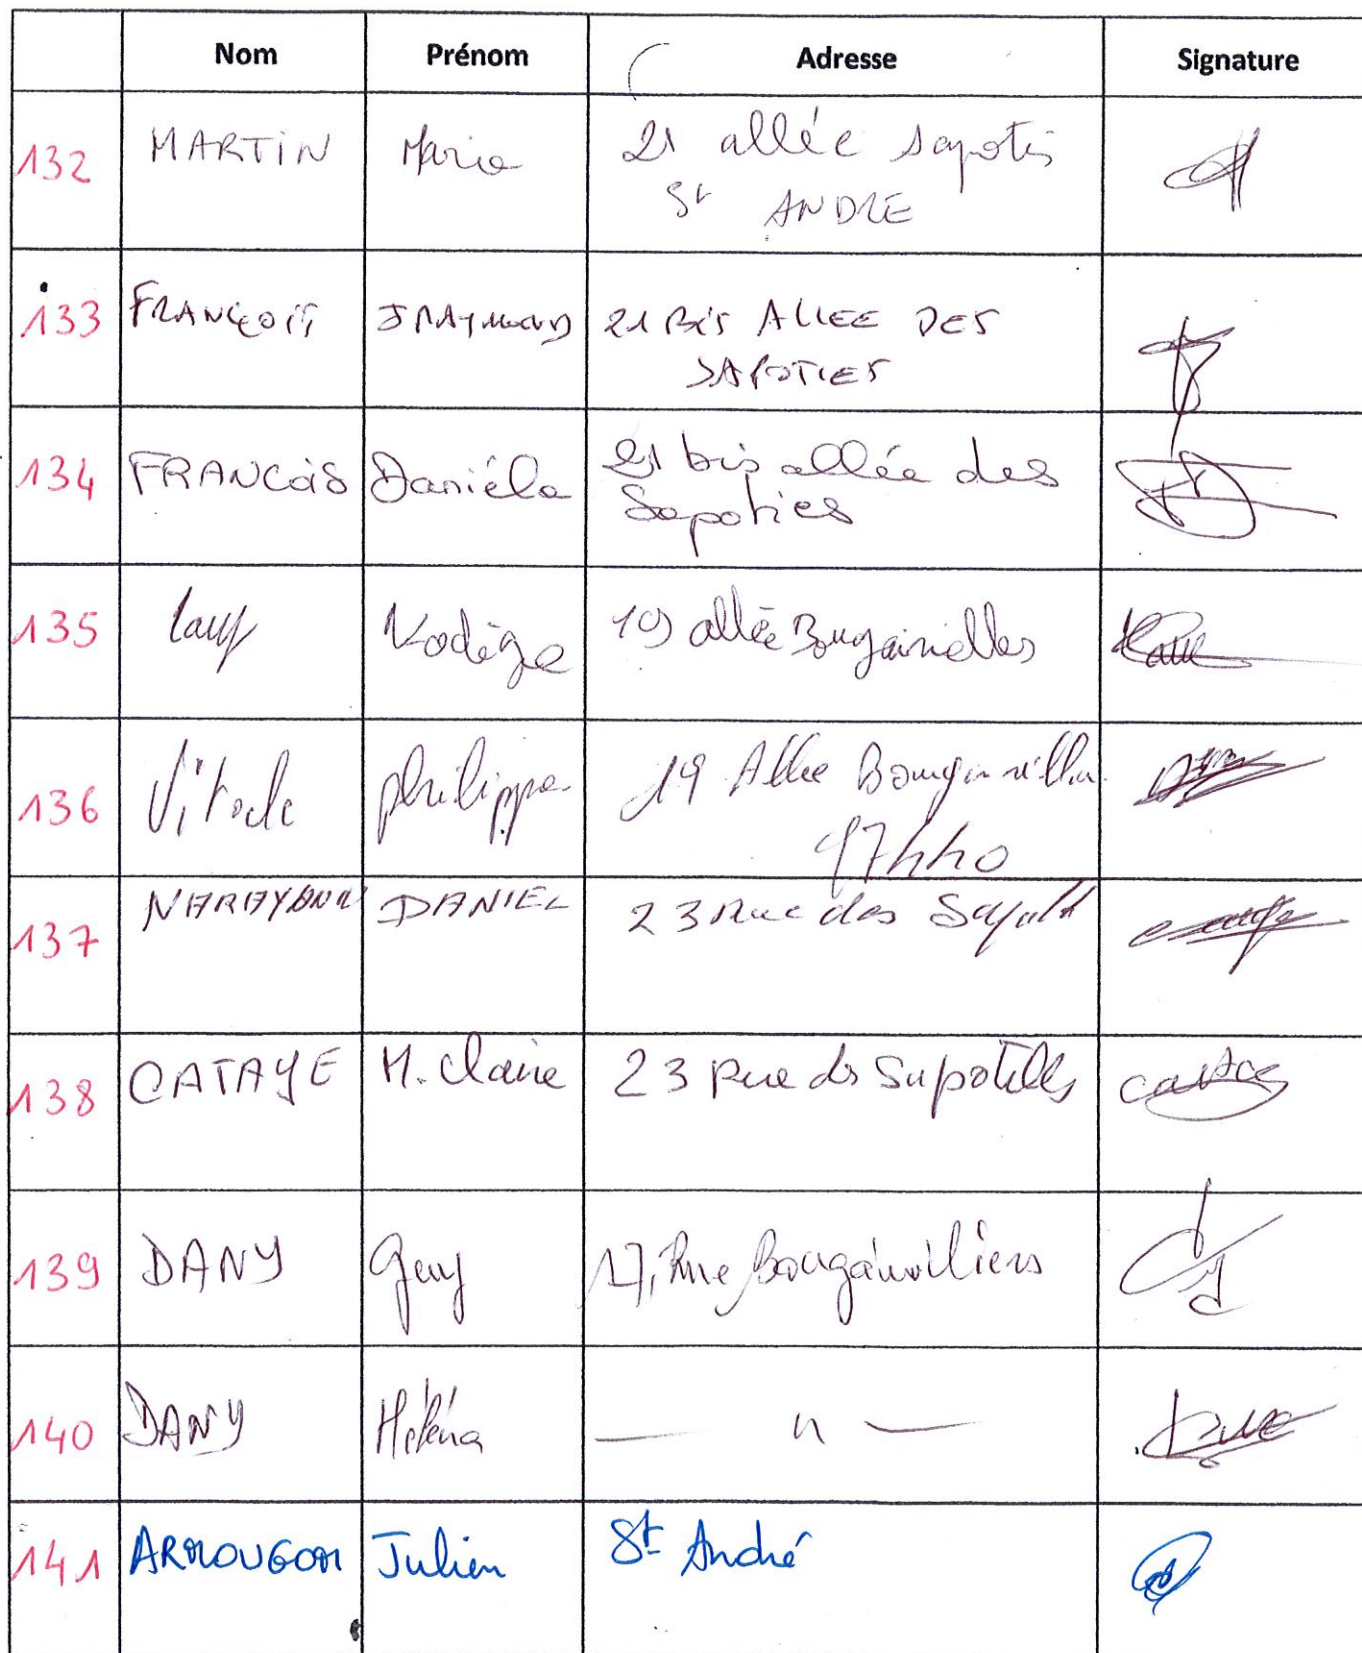 Nom Prénom Adresse Signature
132 MARTIN Marie 21 allée sapotis
St ANDRE
133 FRANÇOIS JRAYMOND 21 Bis ALLEE DES
SAPOTIES
134 FRANCOIS Daniéla 21 bis allée des
Sapoties
135 Nadège 19 allée Bougainvilles
136 Philippe 19 Allee
97440
137 DANIEL 23 Rue des
138 CATAYE M. Claire 23 Rue ds Sapotilles
139 DANY Guy 17, Rue Bougainvilliers
140 DANY Héléna — " —
141 ARMOUGOM Julien St André